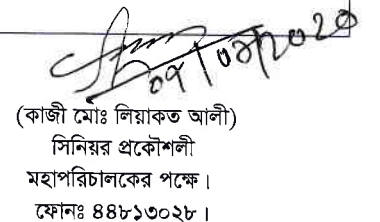 ০৭/০৬/২০২০
(কাজী মোঃ লিয়াকত আলী)
সিনিয়র প্রকৌশলী
মহাপরিচালকের পক্ষে।
ফোনঃ ৪৪৮১৩০২৮।